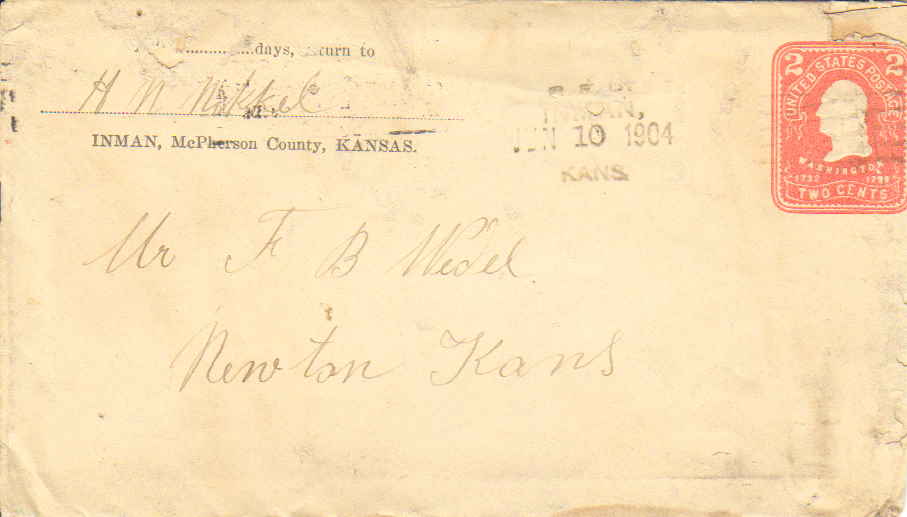 days, return to
H N
INMAN, McPherson County, KANSAS.
R. F. D.
INMAN,
JUN 10 1904
KANS.
2 UNITED STATES POSTAGE 2
WASHINGTON
1732 1799
TWO CENTS
Mr F B Wedel
Newton Kans